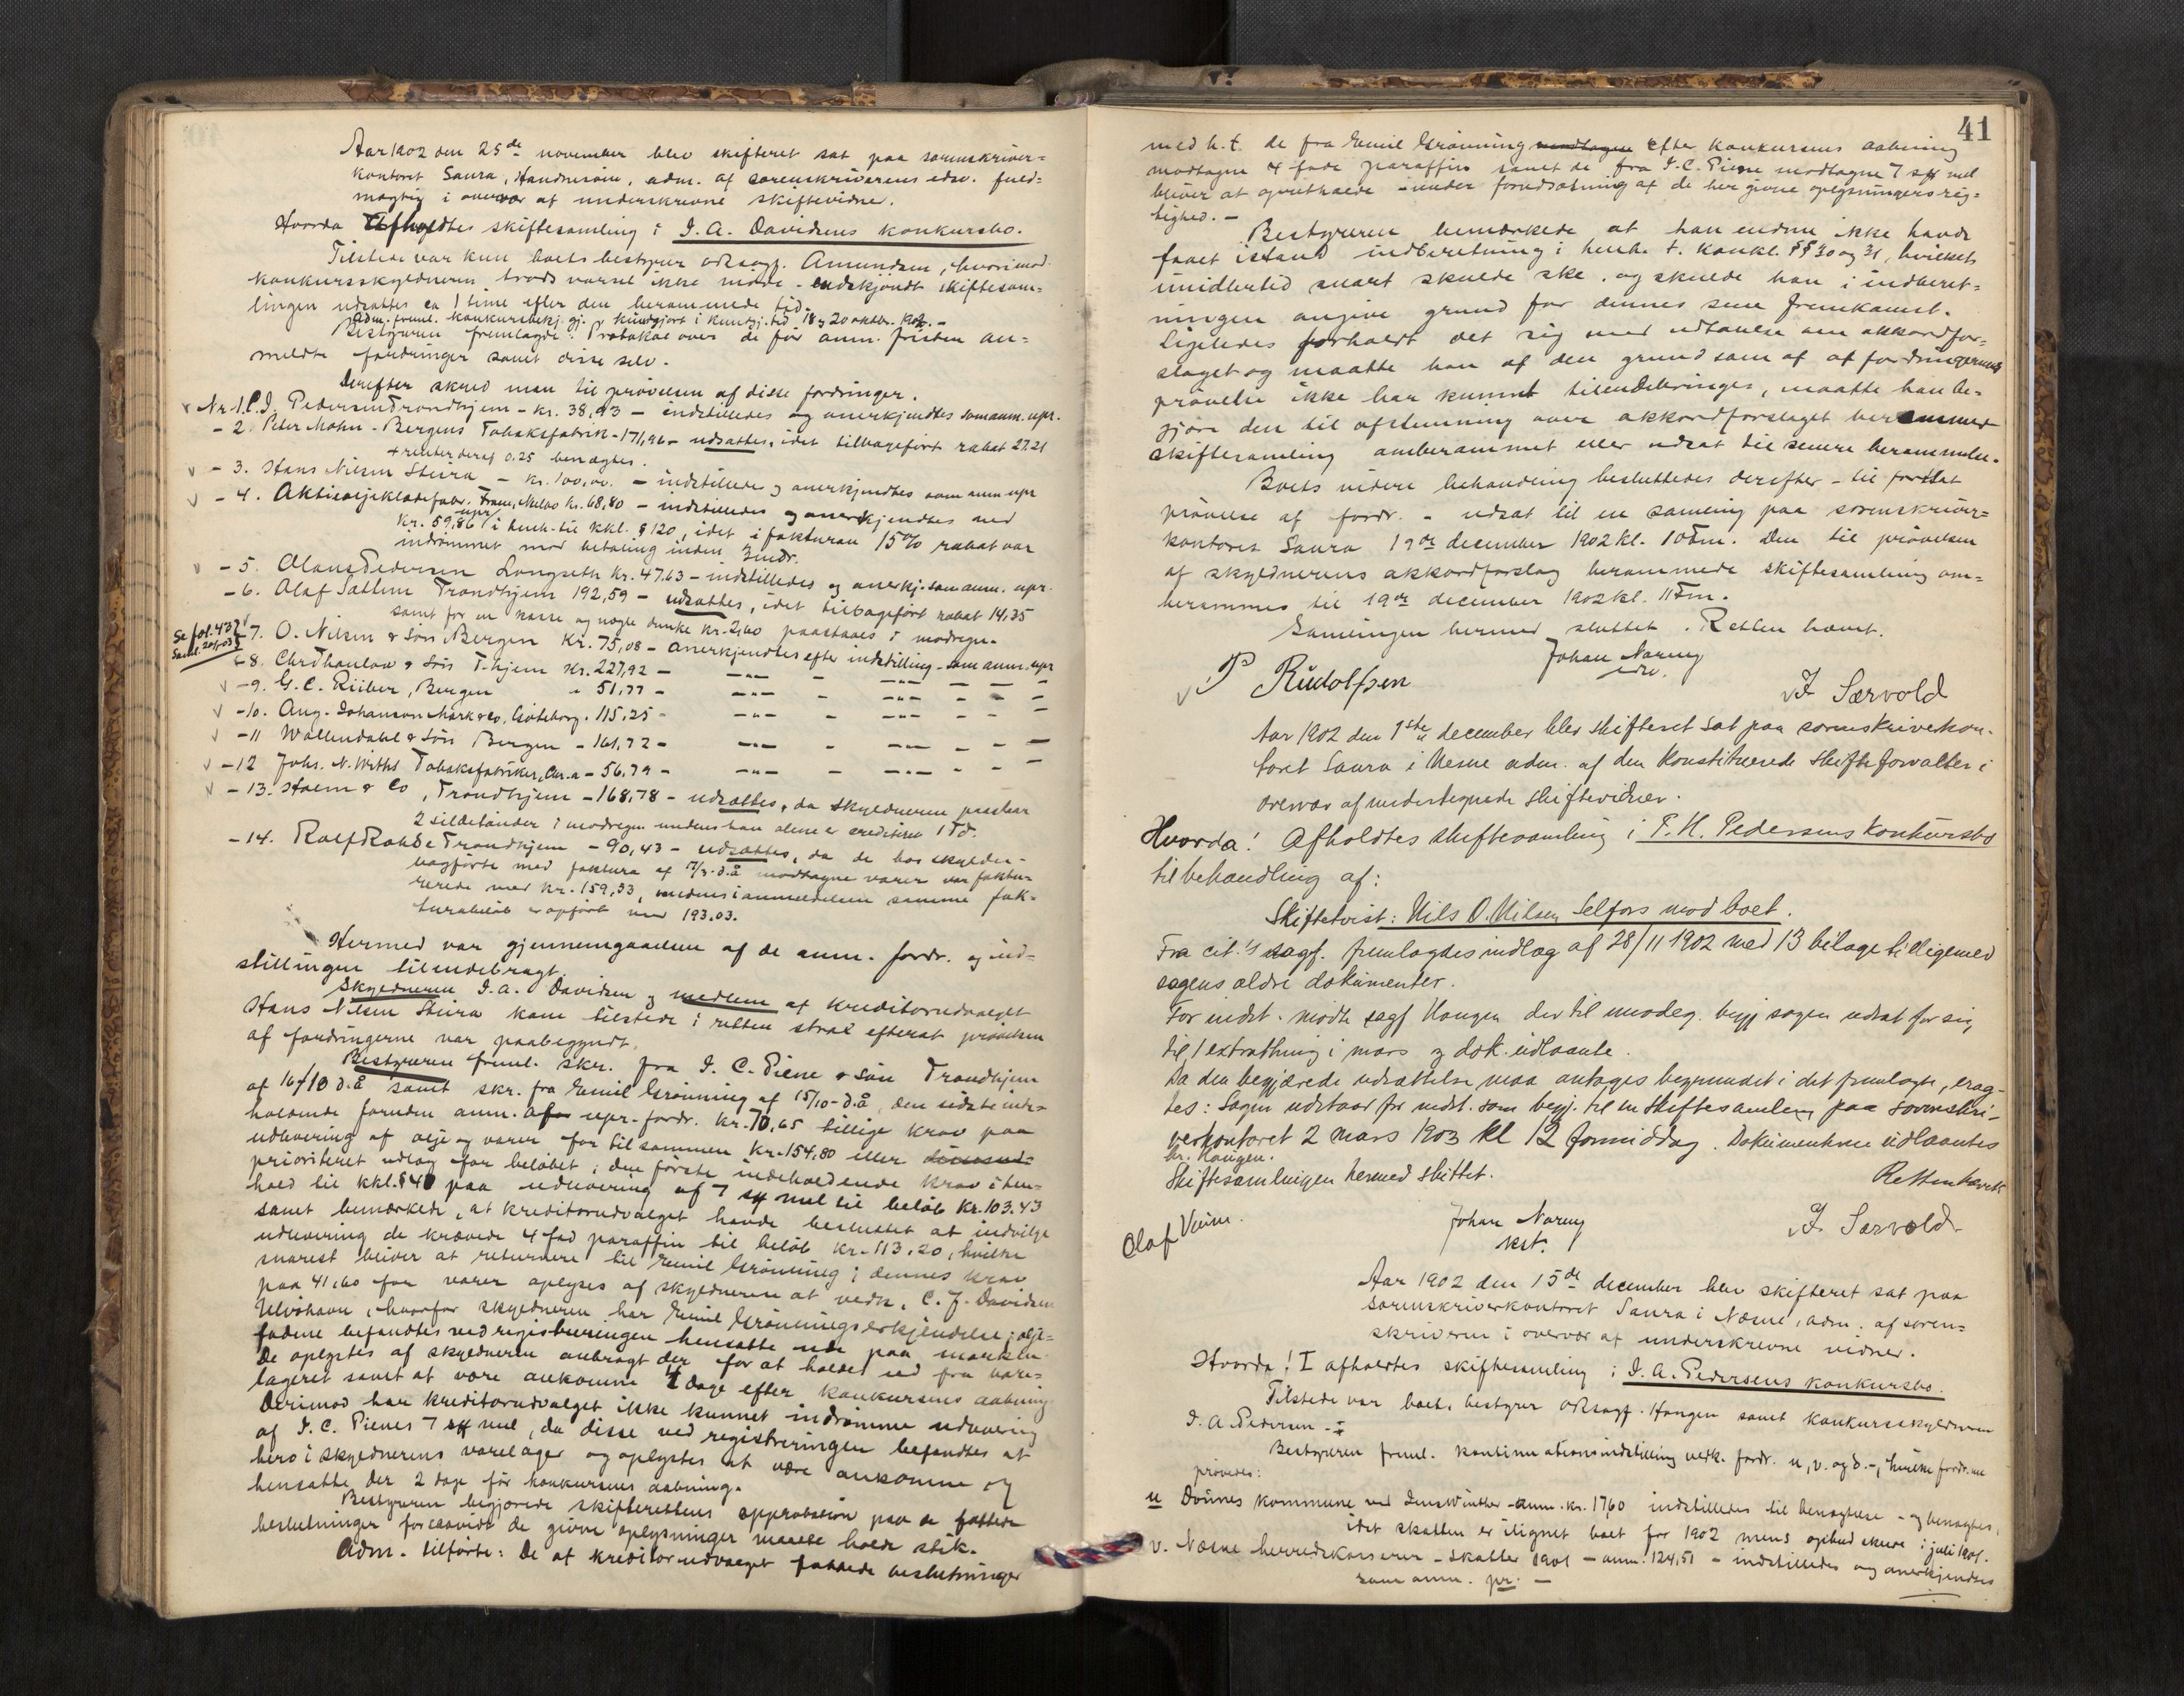 Aar 1902 den 25de november blev skifteret sat paa sorenskriver=
kontoret Saura, Handnesøen, adm. af sorenskriverens edsv. fuld=
mægtig i overvær af underskrevne skiftevidner.
Hvorda Afholdtes skiftesamling i J. A. Davidsens konkursbo.
Tilstede var kun boets bestyrer oRsagf. Amundsen, hvorimod
konkursskyldneren trods varsel ikke mødte - endskjøndt skiftesam=
lingen udsattes ca 1 time efter den berammede tid.
Adm. freml. konkursbekj. gj. kundgjort i Kundgj.tid 18 og 20 oktbr. 1902.-
Bestyreren fremlagde: Protokol over de før anm. fristen an=
meldte fordringer samt disse selv.
Derefter skred man til prøvelsen af disse fordringer.
Nr. 1. P. J. Pedersen Trondhjem - kr. 38,93 - indstilledes og anerkjendtes som anm. upr.
- 2. Peter Mohn - Bergens Tobaksfabrik - 171,96 - udsattes, idet tilbageført rabat 27.21
+ renter deraf 0,25 benægtes.
- 3. Hans Nilsen Stuira - kr. 100,00. - indstilledes og anerkjendtes som anm upr
- 4. Aktieoljeklædefabr. Fram, Melbo kr. 68,80 - indstilledes og anerkjendtes med
kr. 59,86 upr i henh. til kkl. § 120, idet i fakturan 15% rabat var
indrømmet mod betaling inden 3 mdr.
- 5. Olaus Pedersen Longseth kr. 47.63 - indstilledes og anerkj. som anm. upr.
- 6. Olaf Sattem Trondhjem 192,59 - udsattes, idet tilbageført rabat 14,35
samt for en kasse og nogle dunke kr. 2,60 paastaaes i modregn.
Se fol. 43
Saml. 20/1-03
7. O. Nilsen & Søn Bergen kr. 75,08 - anerkjendtes efter indstilling - som anm. upr
- 8. Chr Thaulow & Søn T-hjem kr. 227,92 - -"- - -"- - - -
- 9. G. C. Riiber, Bergen " 51,77 - -"- - -"- - - -
- 10. Aug. Johanson Mark & Co, Göteborg. 115,25 - -"- - -"- - - -
- 11 Wallendahl & Søn Bergen - 161,72 - -"- - -"- - - -
- 12 Johs. N. Withs Tobaksfabriker, Chr.a - 56,79 - -"- - -"- - - -
- 13. Holm & Co, Trondhjem - 168,78 - udsattes, da skyldneren paastaar
2 sildetønder i modregn. medens han alene er krediteret 1 Td.
- 14. Ralf Rohde Trondhjem - 90,43 - udsattes, da de hos skyldn-
bogførte med faktura af 7/3-d.å modtagne varer var faktu=
rerede med kr. 159,33, medens i anmeldelsen samme fak=
turabeløb er opført med 193.03.
Hermed var gjennemgaaelsen af de anm. fordr. og ind=
stillingen tilendebragt.
Skyldneren J. A. Davidsen og medlem af kreditorudvalget
Hans Nilsen Stuira kom tilstede i retten strax efterat prøvelsen
af fordringerne var paabegyndt.
Bestyreren freml. skr. fra J. C. Piene & Søn Trondhjem
af 16/10 d.å samt skr. fra Emil Grønning af 15/10-d.å, den sidste inde=
holdende foruden anm. af upr. fordr. kr. 70,65 tillige krav paa
udlevering af olje og varer for tilsammen kr. 154,80 eller
prioriteret udlæg for beløbet; den første indeholdende krav i hen=
hold til kkl. § 40 paa udlevering af 7 sk mel til beløb kr. 103.43
samt bemærkede, at kreditorudvalget havde besluttet at indvilge
udlevering de krævede 4 fad paraffin til beløb kr. 113.20, hvilke
snarest bliver at returnere til Emil Grønning; dennes krav
paa 41,60 for varer oplyses af skyldneren at vedk. C. J. Davidsen
Ulvshavn, hvorfor skyldneren har Emil Grønnings erkjendelse; olje=
fadene befandtes ved registreringen hensatte ude paa marken.
De oplystes af skyldneren anbragt der for at holdes ud fra vare=
lageret samt at være ankomne 2 dage efter konkursens aabning.
Derimod har kreditorudvalget ikke kunnet indrømme udlevering
af J. C. Pienes 7 sk mel, da disse ved registreringen befandtes at
bero i skyldnerens varelager og oplystes at være ankomne og
hensatte der 2 dage før konkursens aabning.
Bestyreren begjærede skifterettens approbation paa de fattede
beslutninger forsaavidt de givne oplysninger maatte holde stik.
Adm. tilførte: De af kreditorudvalget fattede beslutninger
41
med h. t. de fra Emil Grønning modtagne efter konkursens aabning
modtagne 4 fade paraffin samt de fra J. C. Piene modtagne 7 sk mel
bliver at opretholde under forudsætning af de her givne oplysningers rig=
tighed. -
Bestyreren bemærkede at han endnu ikke havde
faaet istand indberetning i henh. t. konkl. §§ 30 og 31, hvilket
imidlertid snart skulde ske, og skulde han i indberet=
ningen angive grund for dennes sene fremkomst.
Ligeledes forholdt det sig med udtalelse om akkordfor=
slaget og maatte han af den grund som af at fordringernes
prøvelse ikke har kunnet tilendebringes, maatte han be=
gjære den til afstemning over akkordforslaget berammede
skiftesamling omberammet eller udsat til senere berammelse.
Boets videre behandling besluttedes derefter - til fortsat
prøvelse af fordr. - udsat til en samling paa sorenskriver=
kontoret Saura 19de december 1902 kl. 10 Fm. Den til prøvelsen
af skyldnerens akkordforslag berammede skiftesamling om=
berammes til 19de december 1902 kl. 11 Fm.
Samlingen hermed sluttet. Retten hævet.
Johan Narmy
edsv.
P Rudolfsen
J. Særvold
Aar 1902 den 1ste december blev skifteret sat paa sorenskriverkon-
toret Saura i Nesne adm. af den konstituerede skifteforvalter i
overvær af undertegnede skiftevidner.
Hvorda! Afholdtes skiftesamling i P. H. Pedersens konkursbo
til behandling af:
Skiftetvist: Nils O. Nilsen Selfors mod boet.
Fra cit.'s sagf. fremlagdes indlæg af 28/11 1902 med 13 bilage tilligemed
sagens ældre dokumenter.
For indst. mødte sagf Haugen der til imødeg. begj sagen udsat for sig
til 1 extrathing i mars og dok. udlaante.
Da den begjærede udsættelse maa antages begrundet i det fremlagte, erag-
tes: Sagen udstaar for indst. som begj. til en skiftesamling paa sorenskri-
verkontoret 2 mars 1903 kl 12 formiddag. Dokumenterne udlaantes
hr. Haugen.
Skiftesamlingen hermed sluttet.
Retten hævet
Olaf Viim.
Johan Narmy
kst.
J. Særvold
Aar 1902 den 15de december blev skifteret sat paa
sorenskriverkontoret Saura i Næsne, adm. af soren=
skriveren i overvær af underskrevne vidner.
Hvorda! I afholdtes skiftesamling i J. A. Pedersens konkursbo.
Tilstede var boets bestyrer oRsagf. Haugen samt konkursskyldneren
J. A Pedersen -
Bestyreren freml. kontinuationsindstilling vedk. fordr. u, v. og d.-, hvilke fordr. ne
prøvedes:
u Dønnes kommune ved Jens Winther - anm. kr. 17,60 indstilledes til benægtelse - og benægtes,
idet skatten er ilignet boet for 1902 mens opbud skede i juli 1901.
v. Næsne herredskasserer - skatter 1901 - anm. 124,51 - indstilledes og anerkjendtes
som anm. pr. -